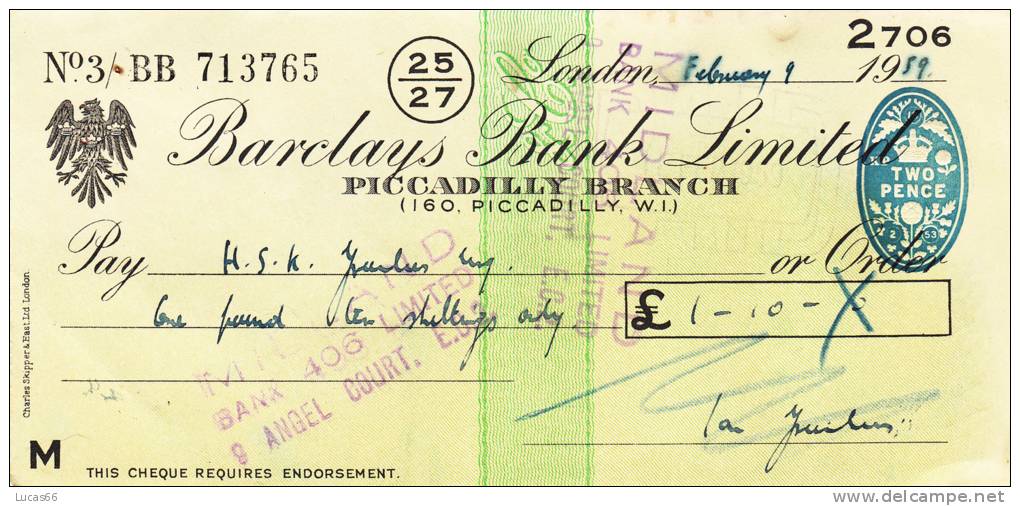 2706
No. 3/ BB 713765
25
27
London, February 9 1959.
Barclays Bank Limited
PICCADILLY BRANCH
(160, PICCADILLY, W.I.)
TWO
PENCE
2 53
Pay H. S. K. Esq. or Order
One pound ten shillings only
£ 1-10-0
MIDLAND
BANK LIMITED
COURT, E.C.
MIDLAND
BANK 406 LIMITED
8 ANGEL COURT, E.C.2
Ian
Charles Skipper & East Ltd London.
M
THIS CHEQUE REQUIRES ENDORSEMENT.
Lucas66
http://www.delcampe.net